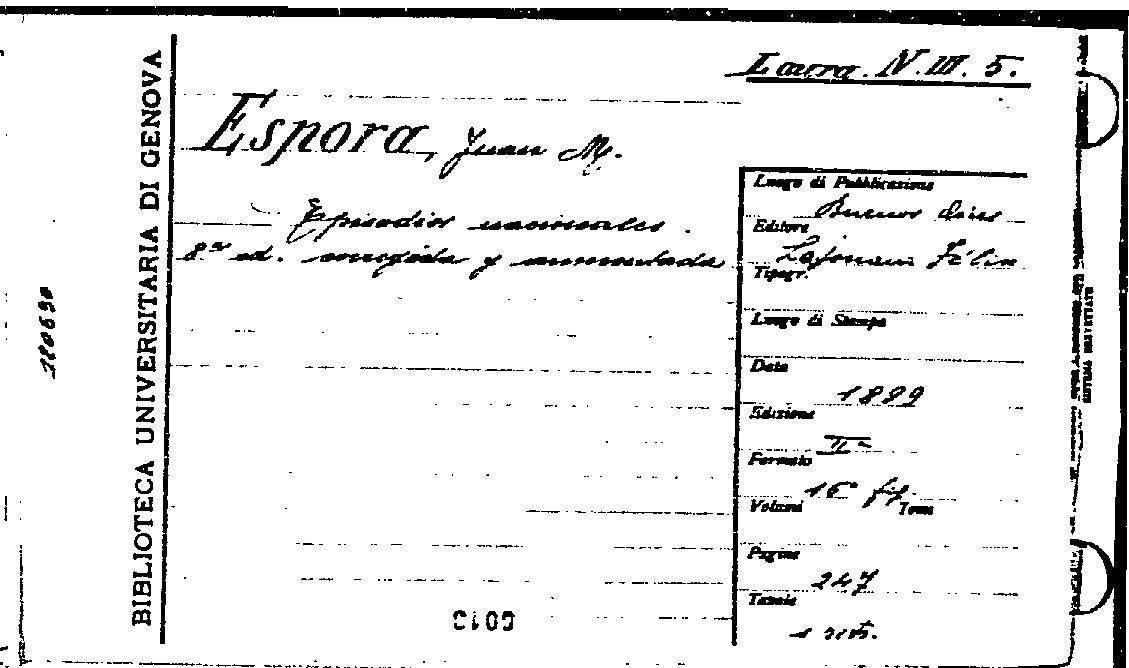 Laura. N. III. 5.
Espora, Juan M.
Episodios nacionales.
8ª ed. corregida y aumentada
BIBLIOTECA UNIVERSITARIA DI GENOVA
Luogo di Pubblicazione
Buenos Aires
Editore
Lajouane Félix
Tipogr.
Luogo di Stampa
Data
1889
Edizione
IIa
Formato
16° fig.
Volumi Tomi
Pagine
247
Tavole
1 ritr.
180630
SISTEMA BREVETTATO